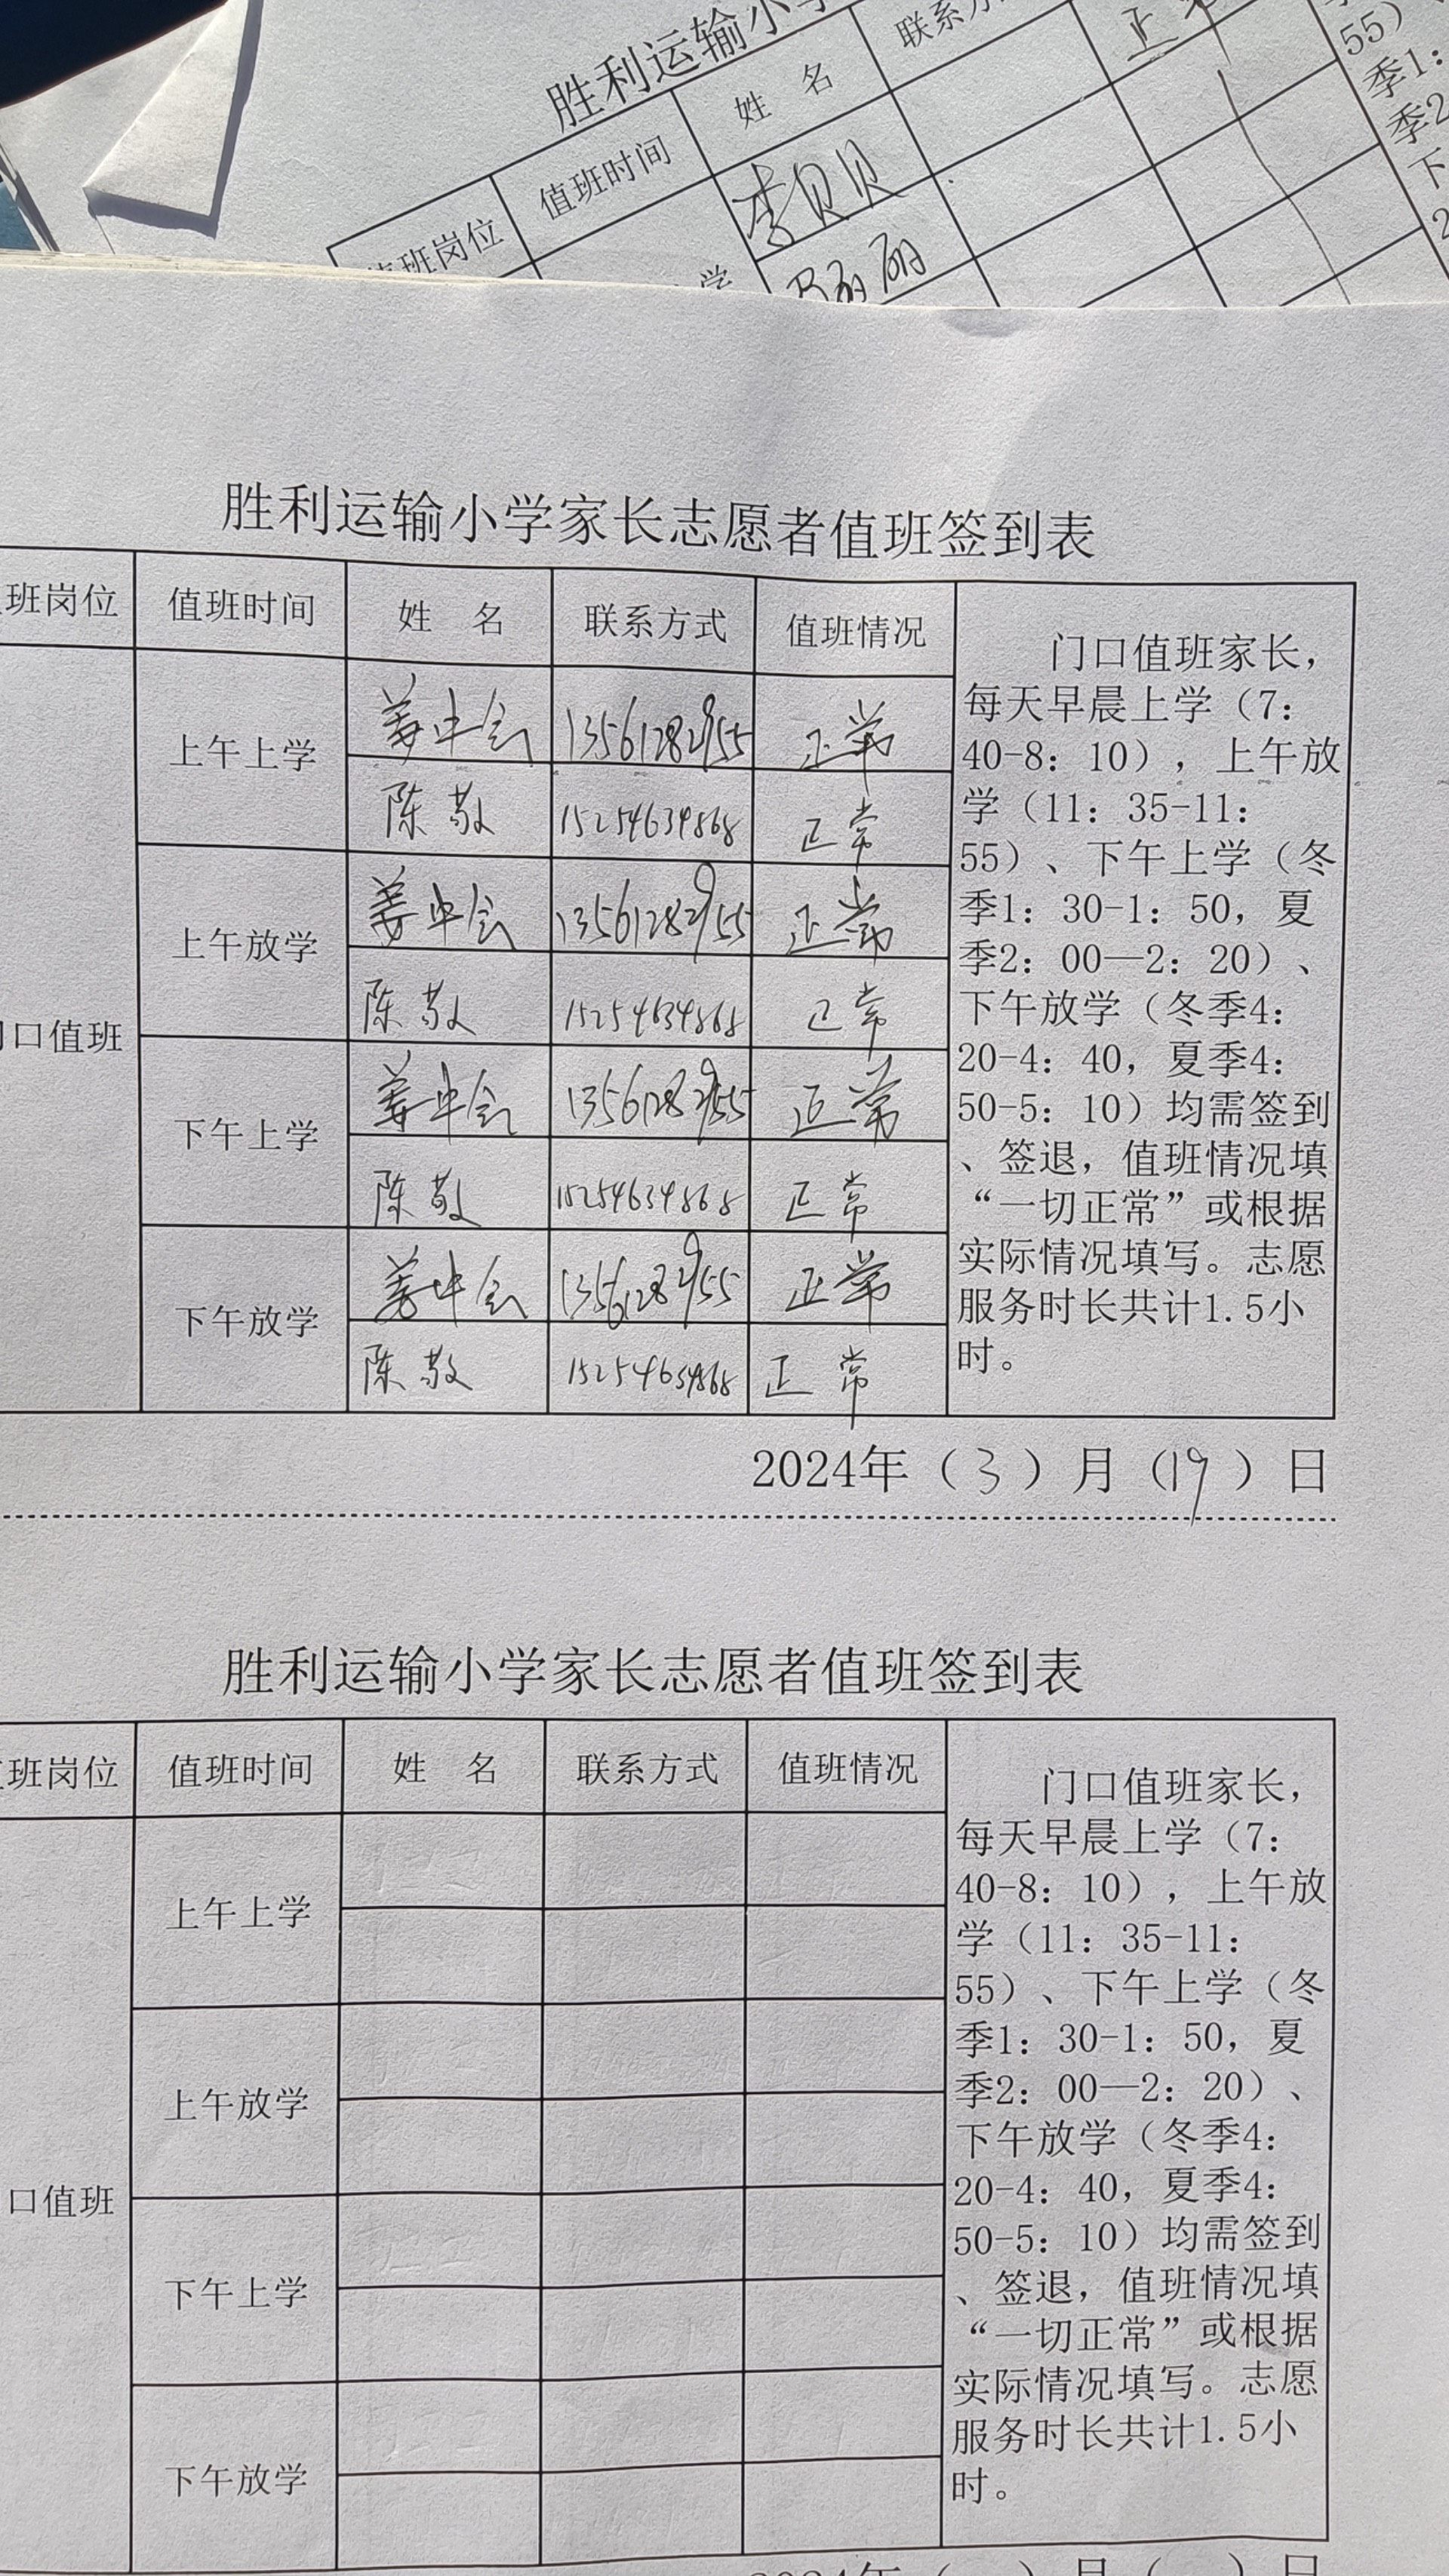 胜利运输小学
值班岗位 值班时间 姓 名 联系方
李贝贝
学
丽
正
55）
季1：
季2
下
2
胜利运输小学家长志愿者值班签到表
班岗位 值班时间 姓 名 联系方式 值班情况
上午上学 姜中会 13561282955 正常
陈敬 15254634868 正常
上午放学 姜中会 13561282955 正常
陈敬 15254634868 正常
门口值班
下午上学 姜中会 13561282955 正常
陈敬 15254634868 正常
下午放学 姜中会 13561282955 正常
陈敬 15254634868 正常
门口值班家长，
每天早晨上学（7：
40-8：10），上午放
学（11：35-11：
55）、下午上学（冬
季1：30-1：50，夏
季2：00—2：20）、
下午放学（冬季4：
20-4：40，夏季4：
50-5：10）均需签到
、签退，值班情况填
“一切正常”或根据
实际情况填写。志愿
服务时长共计1.5小
时。
2024年（3）月（19）日
胜利运输小学家长志愿者值班签到表
班岗位 值班时间 姓 名 联系方式 值班情况
上午上学
上午放学
口值班
下午上学
下午放学
门口值班家长，
每天早晨上学（7：
40-8：10），上午放
学（11：35-11：
55）、下午上学（冬
季1：30-1：50，夏
季2：00—2：20）、
下午放学（冬季4：
20-4：40，夏季4：
50-5：10）均需签到
、签退，值班情况填
“一切正常”或根据
实际情况填写。志愿
服务时长共计1.5小
时。
2024年（ ）月（ ）日